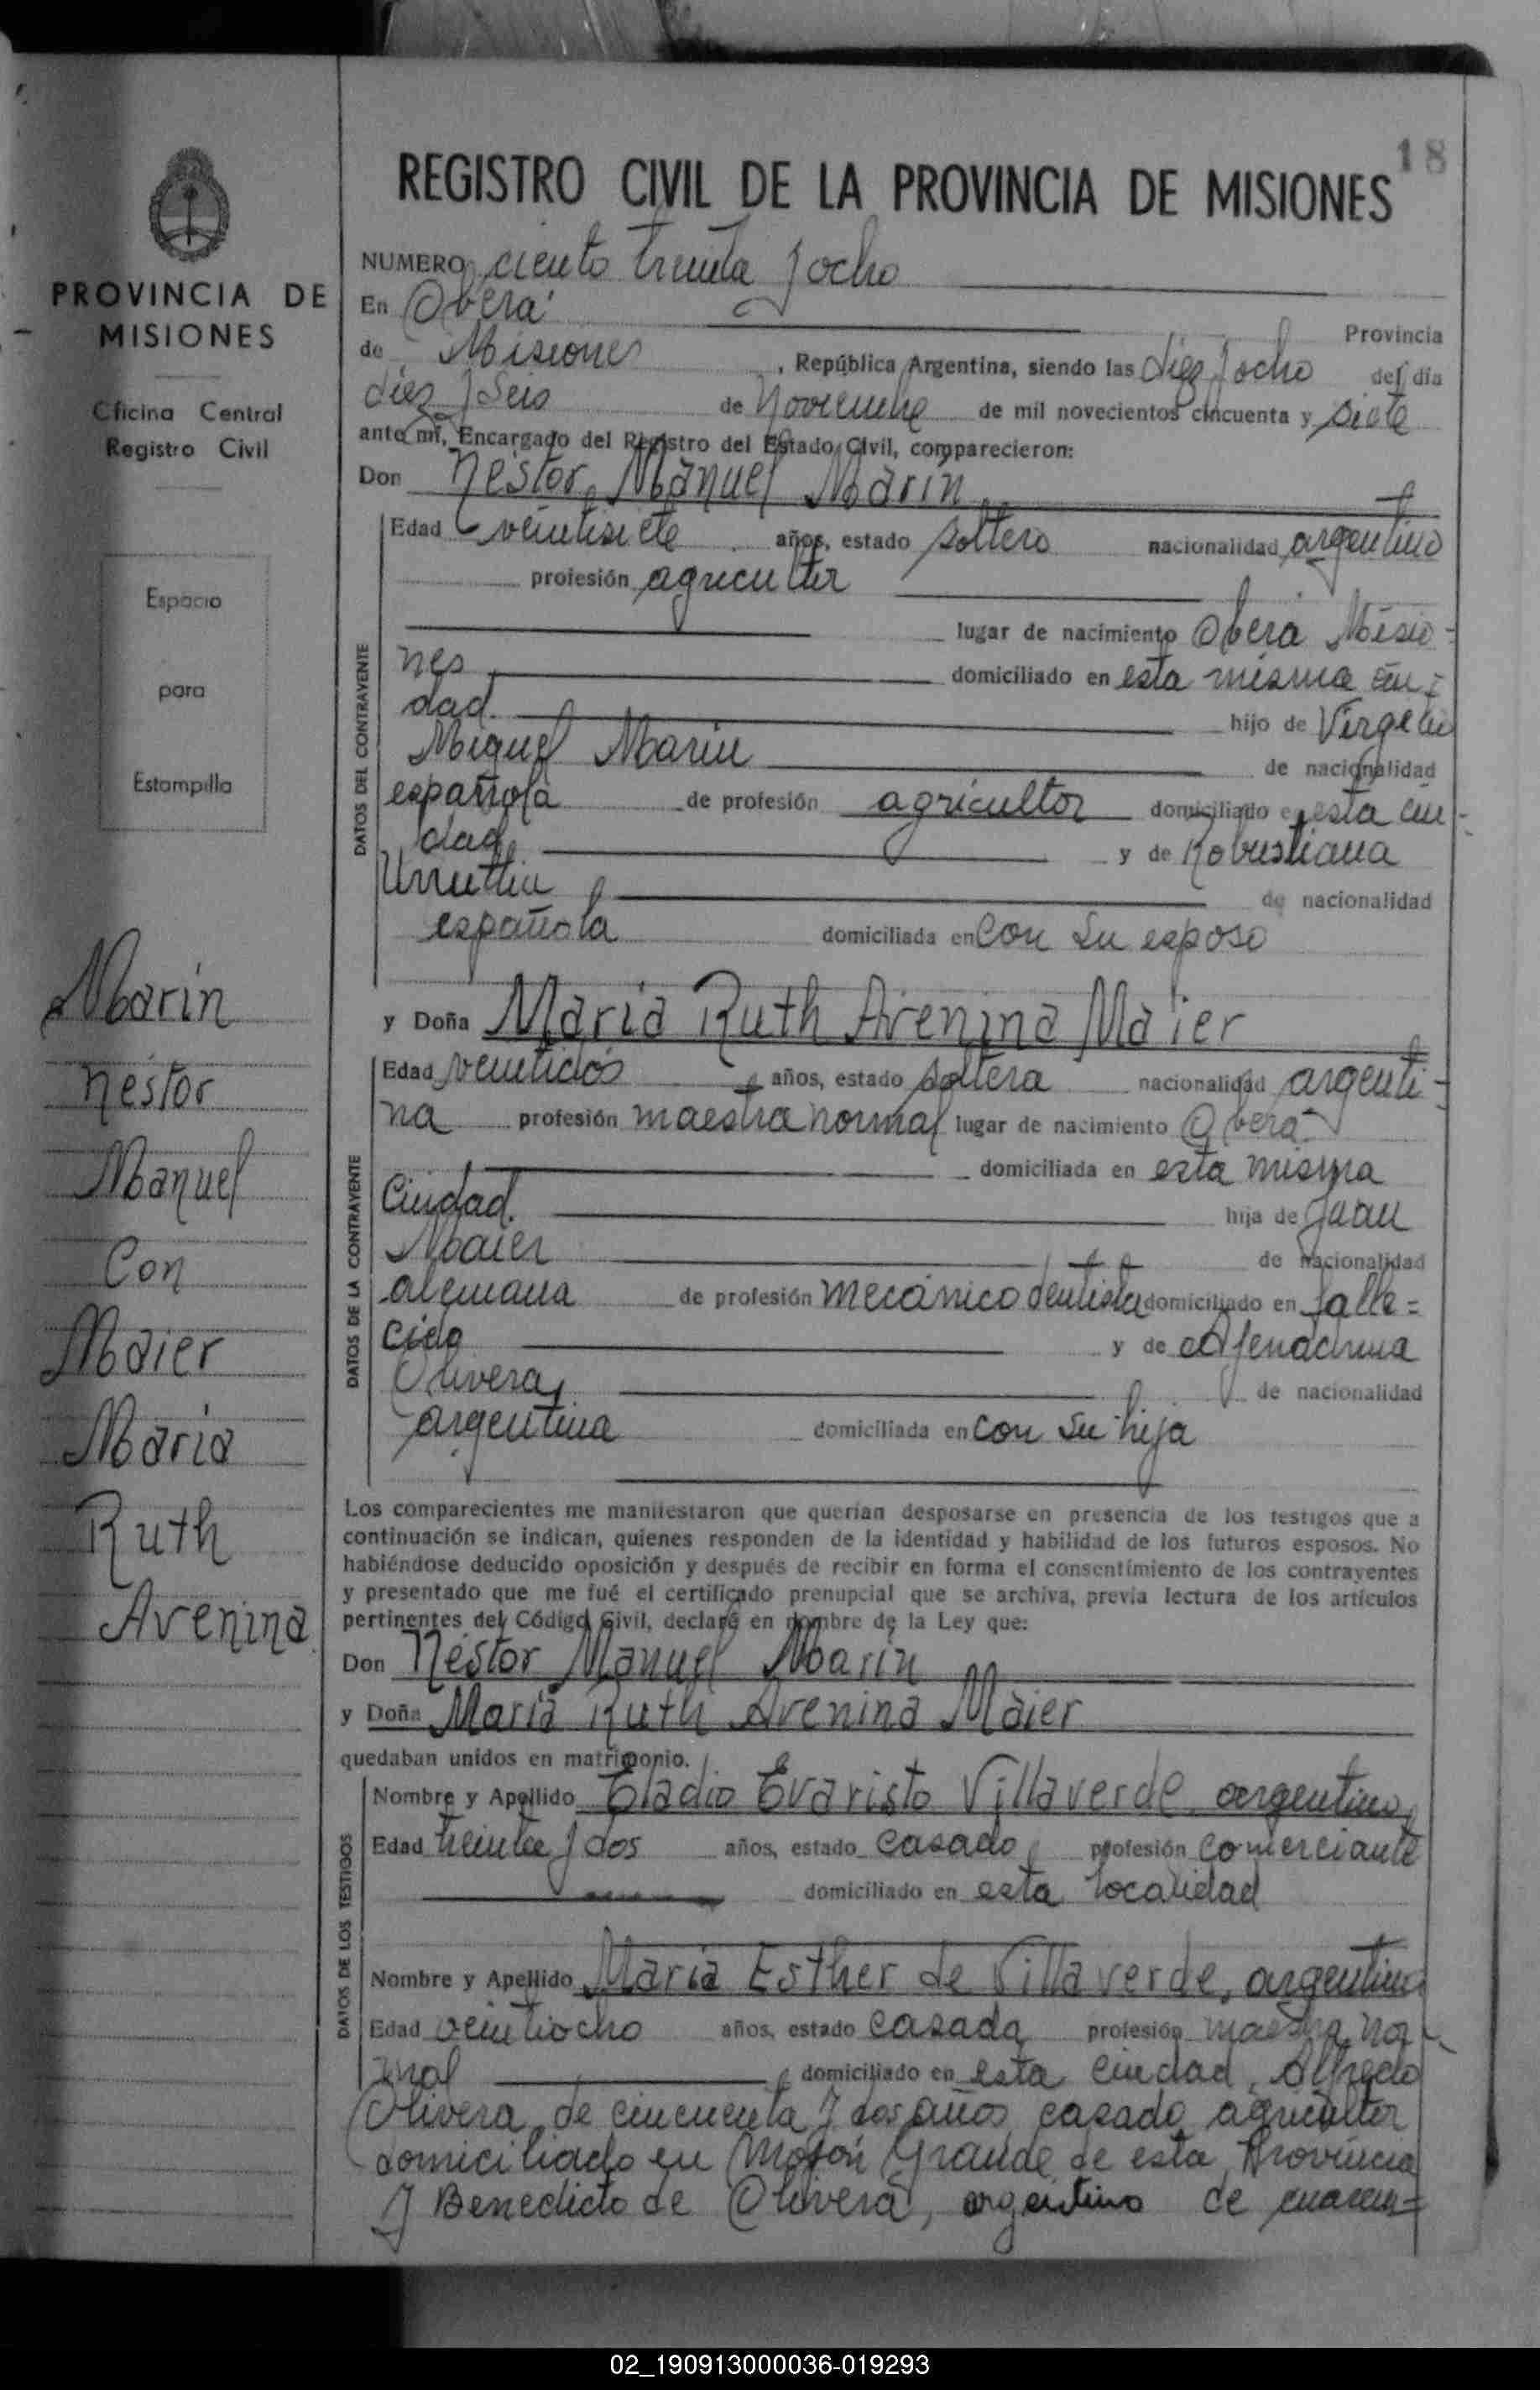 18
REGISTRO CIVIL DE LA PROVINCIA DE MISIONES
PROVINCIA DE
MISIONES
Oficina Central
Registro Civil
Espacio
para
Estampilla
Marín
Néstor
Manuel
Con
Maier
María
Ruth
Avenina
NUMERO ciento treinta y ocho
En Oberá Provincia
de Misiones, República Argentina, siendo las diez y ocho del día
diez y seis de Noviembre de mil novecientos cincuenta y siete
ante mí, Encargado del Registro del Estado Civil, comparecieron:
Don Néstor Manuel Marín
DATOS DEL CONTRAYENTE
Edad veintisiete años, estado soltero nacionalidad argentino
profesión agricultor
lugar de nacimiento Oberá Misio-
nes domiciliado en esta misma ciu-
dad. hijo de
Miguel Marin de nacionalidad
española de profesión agricultor domiciliado en esta ciu-
dad y de Robustiana
de nacionalidad
española domiciliada en con su esposo
y Doña María Ruth Avenina Maier
DATOS DE LA CONTRAYENTE
Edad veintidós años, estado soltera nacionalidad argenti-
na profesión maestra normal lugar de nacimiento Oberá
domiciliada en esta misma
Ciudad. hija de Juan
Maier de nacionalidad
alemana de profesión mecánico dentista domiciliado en falle=
cido y de
Olivera, de nacionalidad
argentina domiciliada en con su hija
Los comparecientes me manifestaron que querían desposarse en presencia de los testigos que a
continuación se indican, quienes responden de la identidad y habilidad de los futuros esposos. No
habiéndose deducido oposición y después de recibir en forma el consentimiento de los contrayentes
y presentado que me fué el certificado prenupcial que se archiva, previa lectura de los artículos
pertinentes del Código Civil, declaré en nombre de la Ley que:
Don Néstor Manuel Marín
y Doña María Ruth Avenina Maier
quedaban unidos en matrimonio.
DATOS DE LOS TESTIGOS
Nombre y Apellido Eladio Evaristo Villaverde, argentino,
Edad treinta y dos años, estado casado profesión comerciante
domiciliado en esta localidad
Nombre y Apellido María Esther de Villaverde, argentina
Edad veintiocho años, estado casada profesión maestra nor-
mal domiciliado en esta ciudad, Alfredo
Olivera, de cincuenta y dos años, casado, agricultor
domiciliado en Mojón Grande de esta Provincia
y Benedicto de Olivera, argentino de cuaren=
02_190913000036-019293